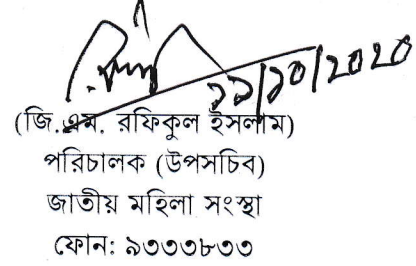 ১১/১০/২০২০
(জি.এম. রফিকুল ইসলাম)
পরিচালক (উপসচিব)
জাতীয় মহিলা সংস্থা
ফোন: ৯৩৩৩৮৩৩